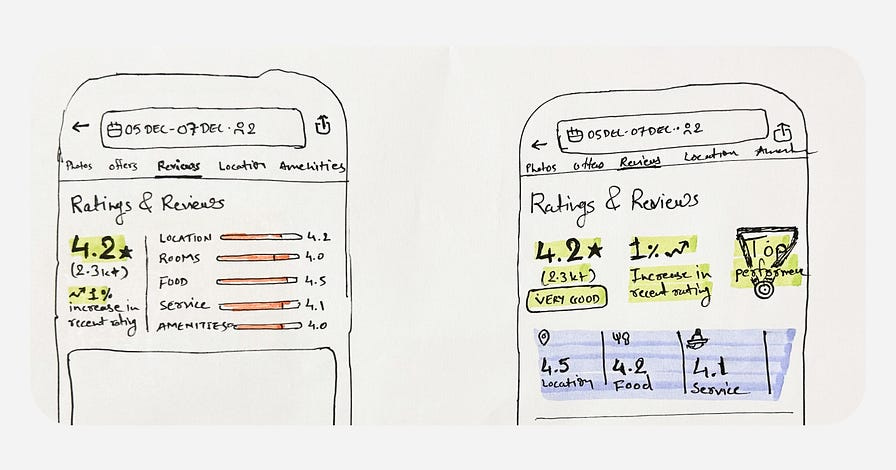 05 DEC-07DEC · 2
Photos offers Reviews Location Amenities
Ratings & Reviews
4.2★
(2.3k+)
1%
increase in
recent rating
LOCATION 4.2
ROOMS 4.0
FOOD 4.5
Service 4.1
AMENITIES 4.0
05DEC-07DEC · 2
Photos offers Reviews Location
Ratings & Reviews
4.2★
(2.3k+)
VERY GOOD
1%
Increase in
recent rating
Top
performer
4.5
Location
4.2
Food
4.1
Service